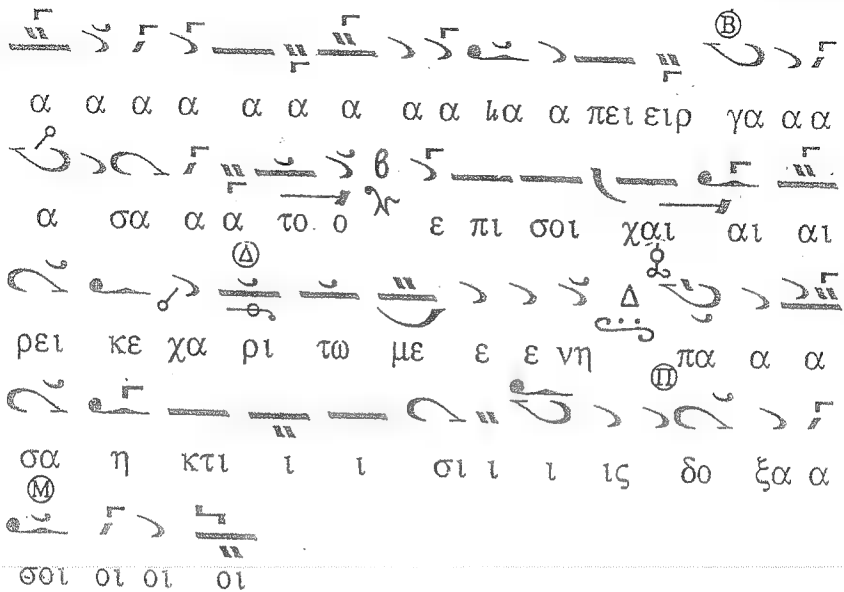 Β
α α α α α α α α α ἁα α πει ειρ γα α α
β
α σα α α το ο ε πι σοι χαι αι αι
Δ
Δ
ρει κε χα ρι τω με ε ε νη πα α α
Π
σα η κτι ι ι σι ι ι ις δο ξα α
Μ
σοι οι οι οι